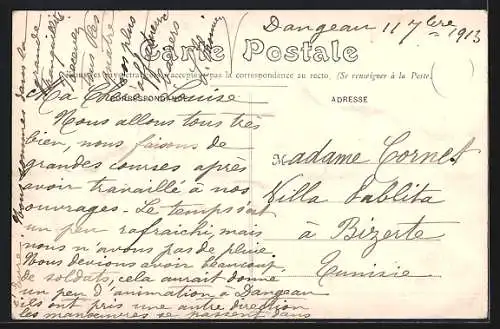 Dangeau 11 7bre 1913
Carte Postale
(Se renseigner à la Poste)
la correspondance au recto.
CORRESPONDANCE
ADRESSE
Ma Chère Louise
Nous allons tous très
bien, nous faisons de
grandes courses après
avoir travaillé à nos
ouvrages. Le temps s'est
un peu rafraichi mais
nous n'avons pas de pluie.
Nous devions avoir beaucoup
de soldats, cela aurait donné
un peu d'animation à Dangeau
ils ont pris une autre direction
les manœuvres se passent dans
Madame Cornet
Villa Tablita
à Bizerte
Tunisie